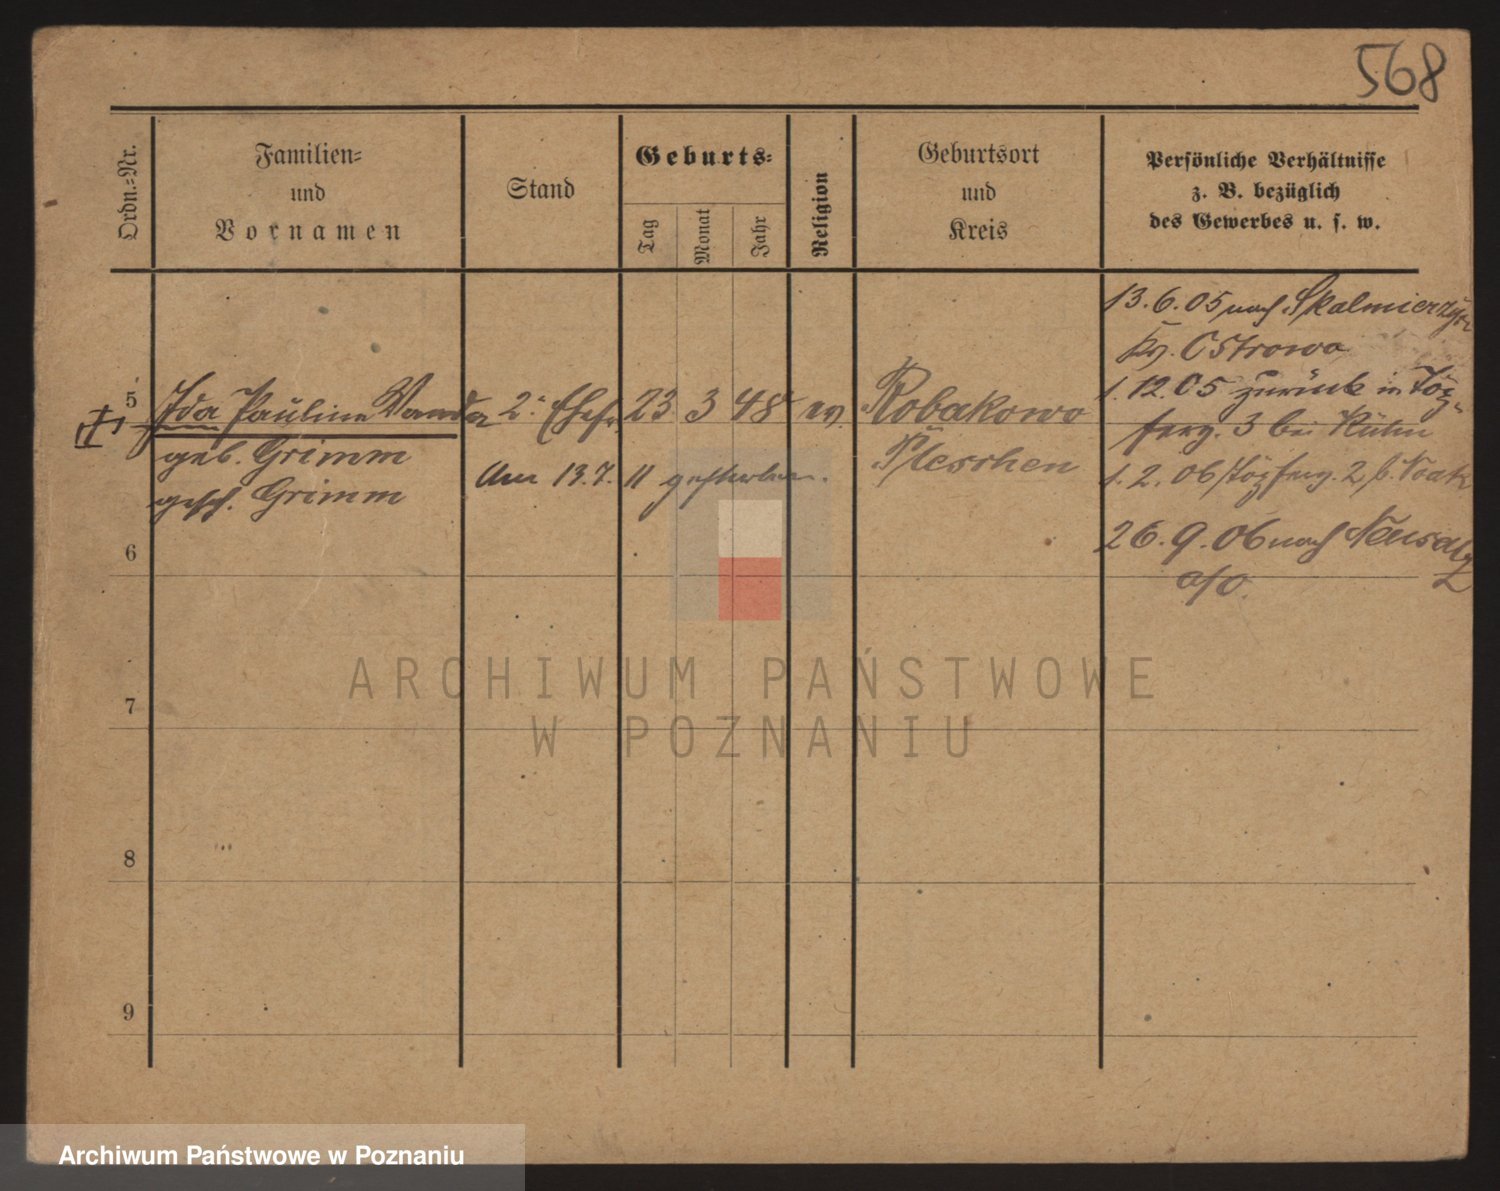 568
Ordn.-Nr.
Familien-
und
Vornamen
Stand
Geburts-
Tag
Monat
Jahr
Religion
Geburtsort
und
Kreis
Persönliche Verhältnisse
z. B. bezüglich
des Gewerbes u. s. w.
13.6.05 nach Skalmierzyce
Kr. Ostrowo
1.12.05 zurück in
3 bei
1.2.06 2 b. Noak
26.9.06 nach Neusalz
a/O.
5 Ida Pauline Wanda 2. Ehefr. 23 3 48 ev. Robakowo
geb. Grimm Pleschen
gesch. Grimm
Am 13.7.11 gestorben.
6
7
8
9
ARCHIWUM PAŃSTWOWE
W POZNANIU
Archiwum Państwowe w Poznaniu